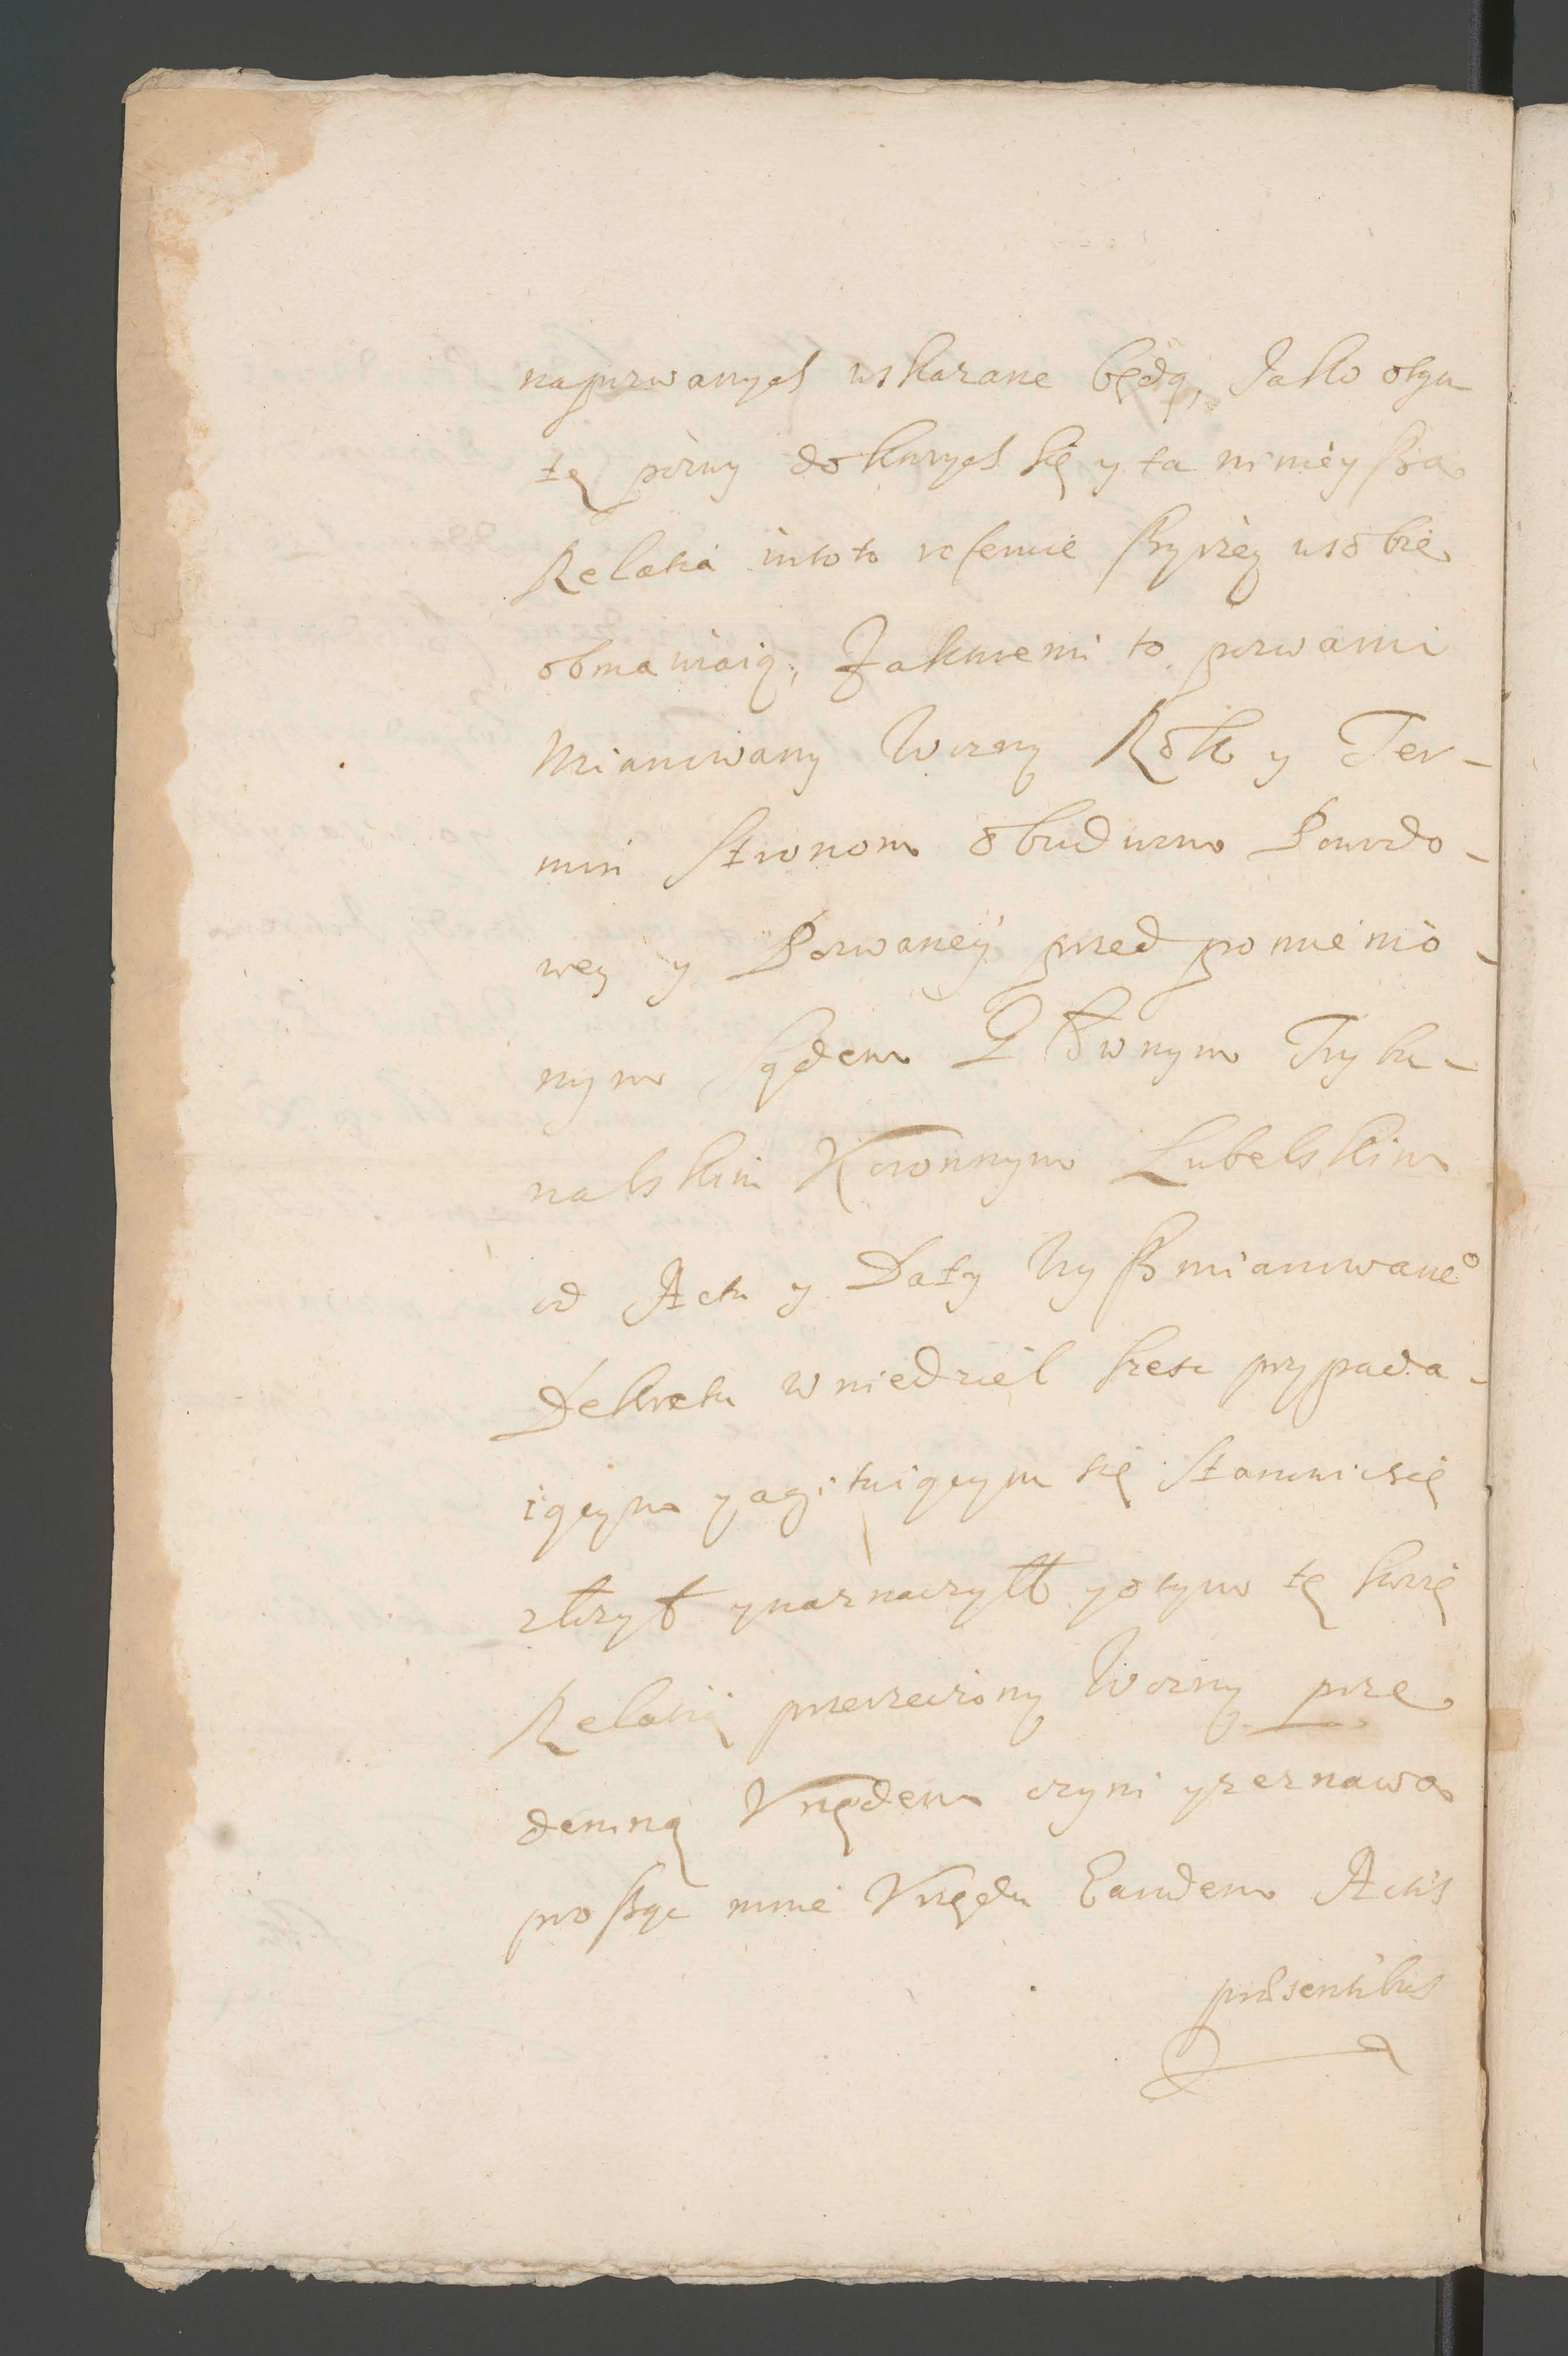 napozwanych wskazane będą, Jako otym
tę pozwy doktorych się y ta ninieyſza
Relatia in toto referuie ſzyrzey wsobie
obmawiaią, Zaktoremi to pozwami
Mianowany Wozny Rok y Ter-
min Stronom obudwum Powodo-
wey y Pozwaney przed pomienio-
nym Sądem Głównym Trybu-
nalskim Koronnym Lubelskim
od Actu y Daty Wyſzmianowane°
Dekretu w niedziel sześc przypada-
iącym y agituiącym się Stanowicsię
złozył y naznaczył y o tym tę swoię
Relatią przerzeczony Wozny prze
demną Vrzędem czyni y zeznawa
proſząc mnie Vrzędu Eandem Actis
præsentibus